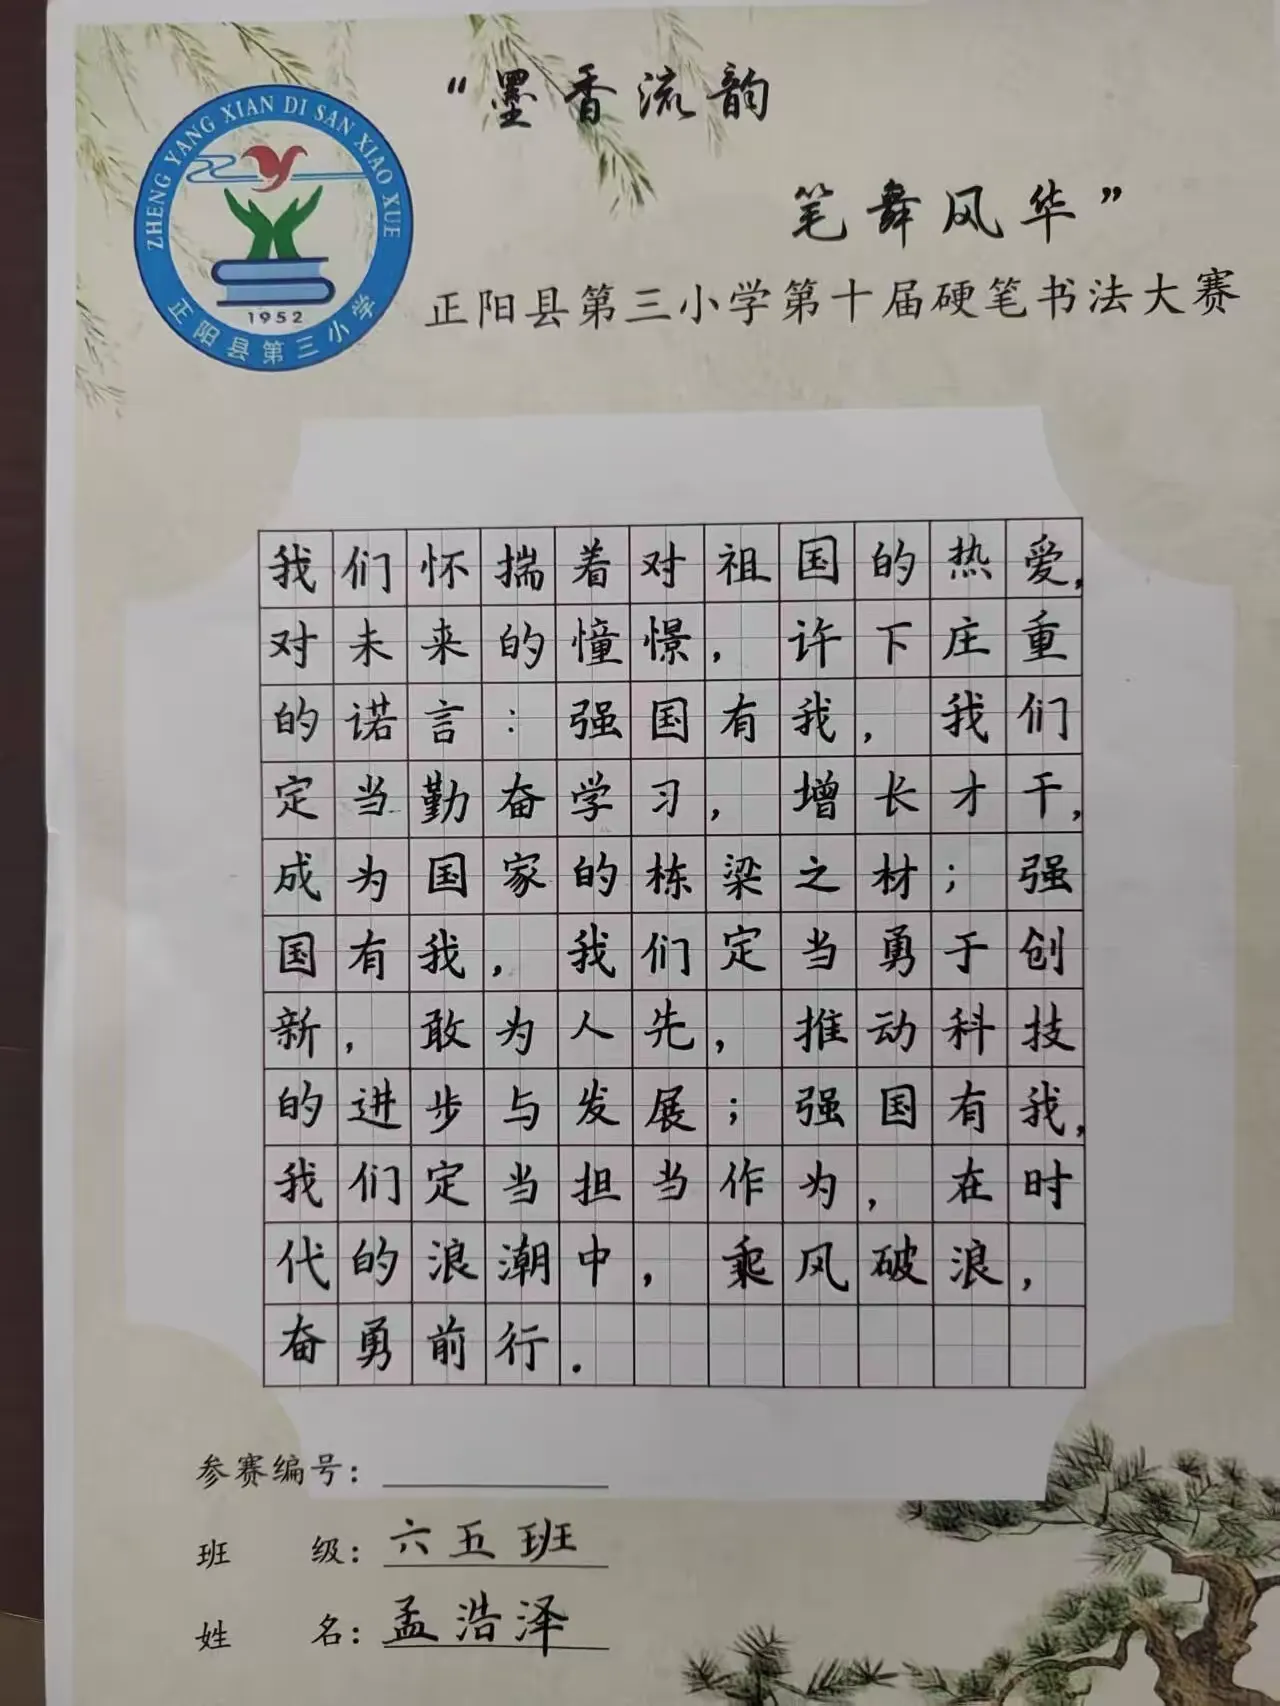 “墨香流韵
笔舞风华”
ZHENG YANG XIAN DI SAN XIAO XUE
1952
正阳县第三小学
正阳县第三小学第十届硬笔书法大赛
我们怀揣着对祖国的热爱,
对未来的憧憬，许下庄重
的诺言：强国有我，我们
定当勤奋学习，增长才干,
成为国家的栋梁之材；强
国有我，我们定当勇于创
新，敢为人先，推动科技
的进步与发展；强国有我,
我们定当担当作为，在时
代的浪潮中，乘风破浪，
奋勇前行.
参赛编号：
班 级：六五班
姓 名：孟浩泽